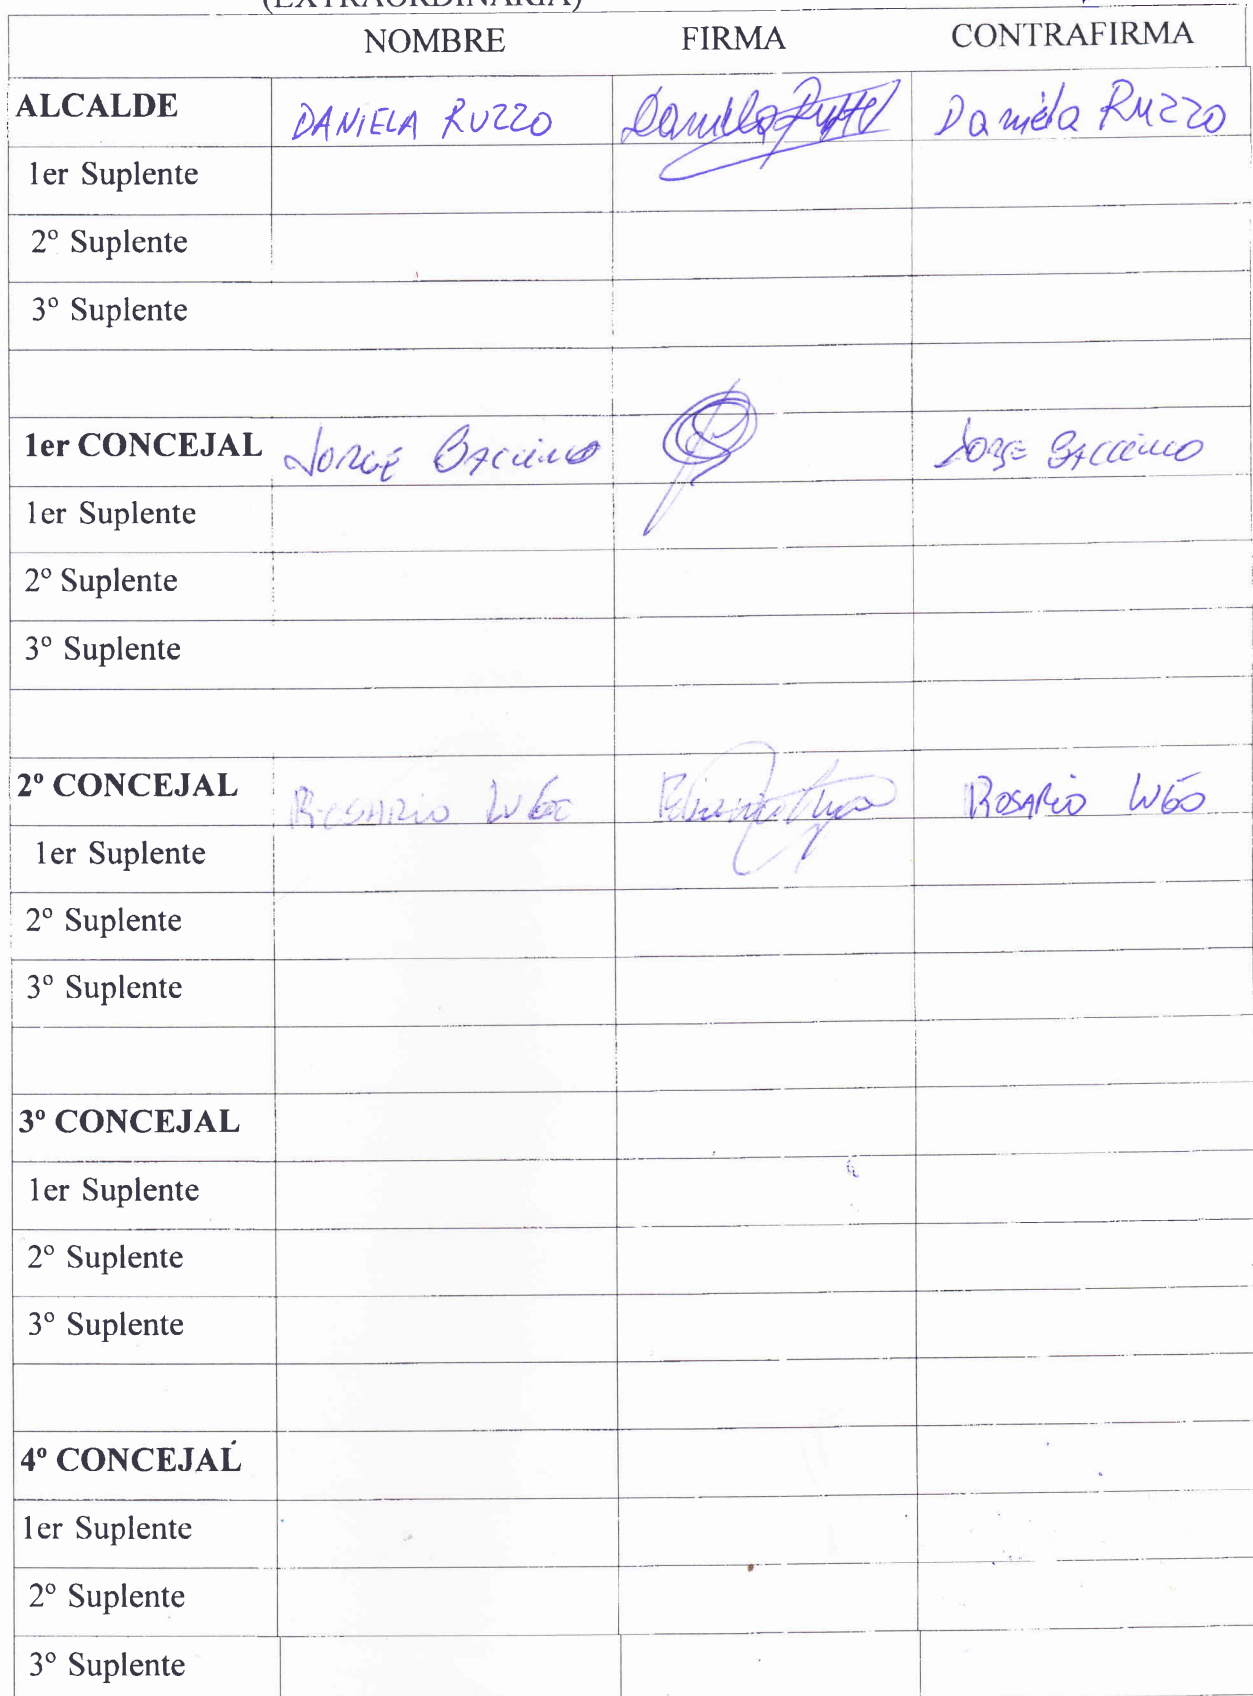 (EXTRAORDINARIA)
NOMBRE FIRMA CONTRAFIRMA
ALCALDE DANIELA RUZZO Daniela Ruzzo Daniela Ruzzo
1er Suplente
2º Suplente
3º Suplente
1er CONCEJAL JORGE BACCINO JORGE BACCINO
1er Suplente
2º Suplente
3º Suplente
2º CONCEJAL ROSARIO LUGO ROSARIO LUGO
1er Suplente
2º Suplente
3º Suplente
3º CONCEJAL
1er Suplente
2º Suplente
3º Suplente
4º CONCEJAL
1er Suplente
2º Suplente
3º Suplente